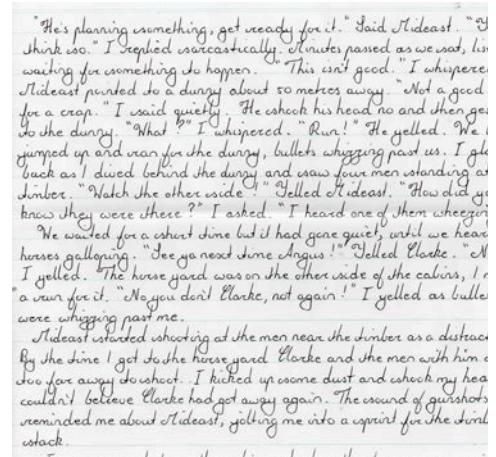 "He's planning something, get ready for it." Said Mideast. "
think so." I replied sarcastically. Minutes passed as we sat, lis
waiting for something to happen. "This isn't good." I whispere
Mideast pointed to a dunny about 50 metres away. "Not a good
for a crap." I said quietly. He shook his head no and then ges
to the dunny. "What?" I whispered. "Run!" He yelled. We
jumped up and ran for the dunny, bullets whizzing past us. I gla
back as I dived behind the dunny and saw four men standing at
timber. "Watch the other side!" Yelled Mideast. "How did yo
know they were there?" I asked. "I heard one of them wheezin
We waited for a short time but it had gone quiet, until we hear
horses galloping. "See ya next time Angus!" Yelled Clarke. "N
I yelled. The horse yard was on the other side of the cabins, I
a run for it. "No you don't Clarke, not again!" I yelled as bulle
were whizzing past me.
Mideast started shooting at the men near the timber as a distract
By the time I got to the horse yard Clarke and the men with him
too far away to shoot. I kicked up some dust and shook my hea
couldn't believe Clarke had got away again. The sound of gunshots
reminded me about Mideast, jolting me into a sprint for the timb
stack.